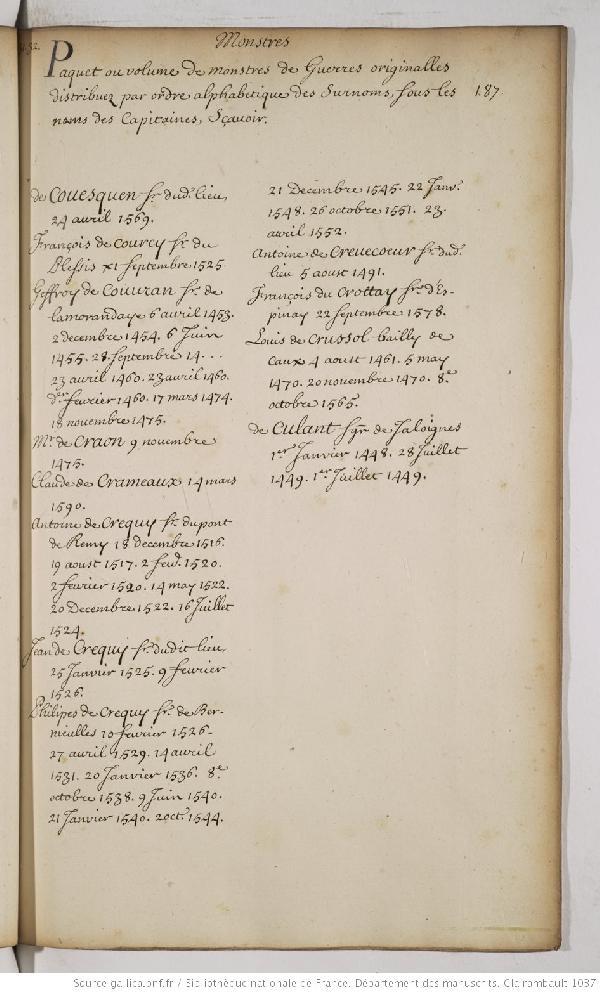 Monstres
Paquet ou volume de monstres de Guerres originalles
distribuez par ordre alphabetique des Surnoms, sous les
noms des Capitaines, Sçavoir.
187.
de Couesquen sr. dud. lieu,
24 avril 1569.
François de Courcy sr. du
Plessis XI septembre 1525
Geffroy de Couuran sr. de
lamorandaye 6 avril 1453.
2 decembre 1454. 6 Juin
1455. 28. septembre 14...
23 avril 1460. 23 avril 1460.
der. fevrier 1460. 17 mars 1474.
18 novembre 1475.
Mr. de Craon 9 novembre
1475.
Claude de Crameaux 14 mars
1590.
Antoine de Crequy sr. du pont
de Remy 18 decembre 1516.
19 aoust 1517. 2 feud. 1520.
2 fevrier 1520. 14 may 1522.
20 Decembre 1522. 16 Juillet
1524.
Jean de Crequy sr. dudit lieu,
25 Janvier 1525. 9 fevrier
1526.
Philipes de Crequy sr. de Ber-
nieulles 10 fevrier 1526.
27 avril 1529. 14 avril
1531. 20 Janvier 1536. 8e.
octobre 1538. 9 Juin 1540.
21 Janvier 1540. 2 oct. 1544.
21 Decembre 1545. 22 Janv.
1548. 26 octobre 1551. 23.
avril 1552.
Antoine de Crevecoeur sr. dud.
lieu 5 aoust 1491.
François du Crottay sr. d'Es-
pinay 22 septembre 1578.
Louis de Crussol bailly de
Caux 4 aoust 1461. 5 may
1470. 20 novembre 1470. 8e.
octobre 1565.
de Culant sgr. de Jaloignes
1er Janvier 1448. 28 Juillet
1449. 1er Juillet 1449.
Source gallica.bnf.fr / Bibliothèque nationale de France. Département des manuscrits. Clairambault 1037